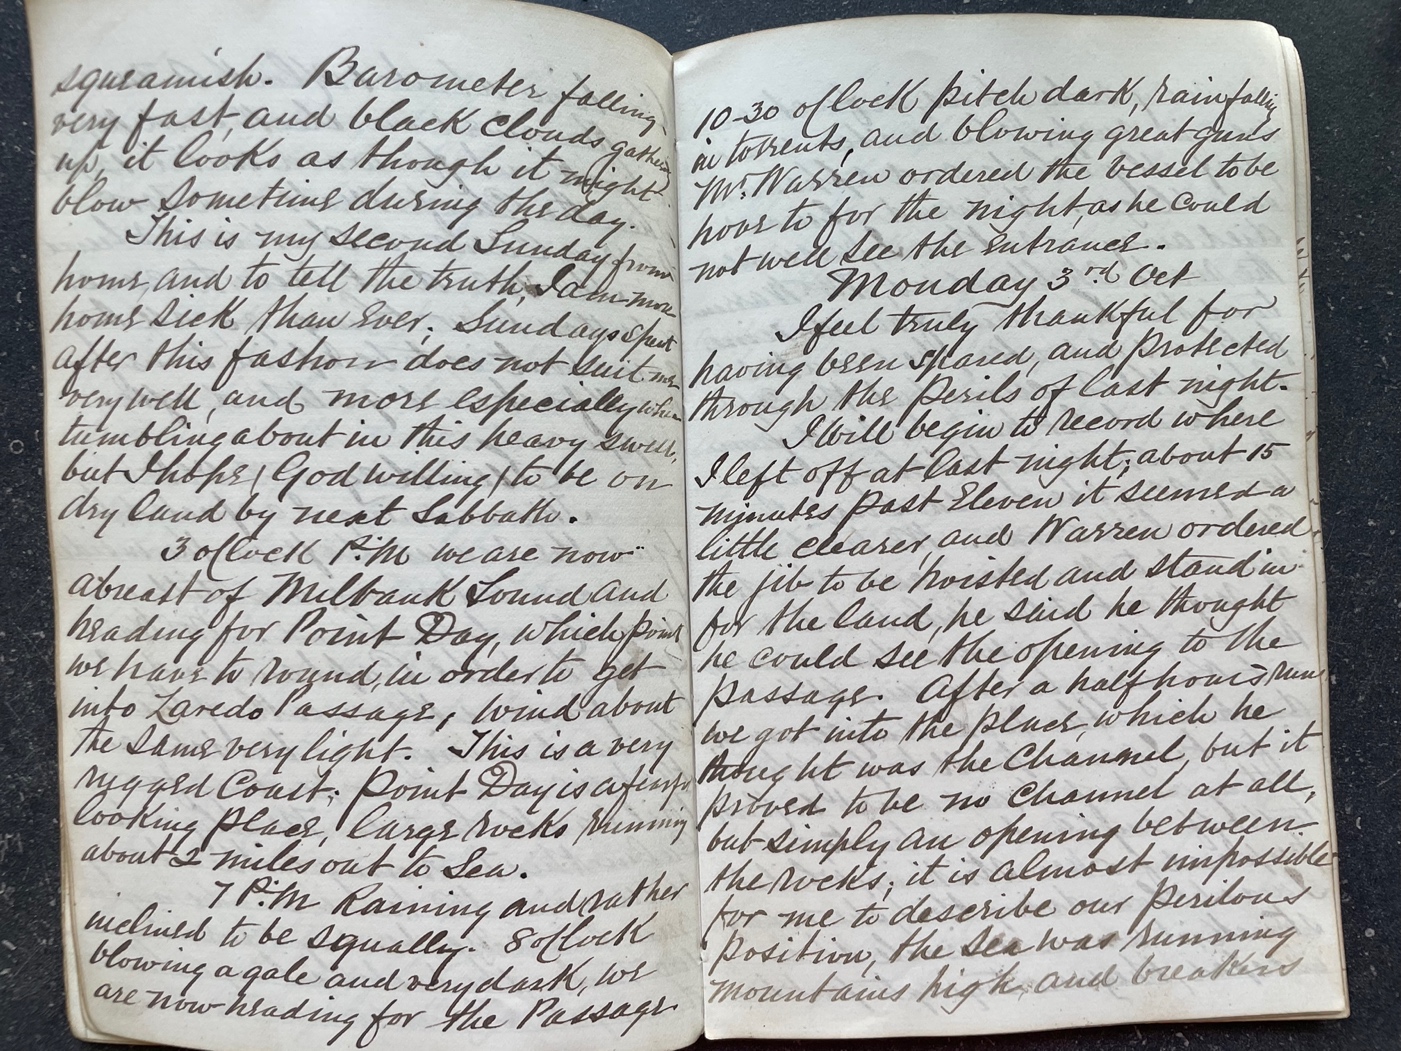 squeamish. Barometer falling
very fast, and black clouds gathering
up, it looks as though it might
blow sometime during the day.
This is my second Sunday from
home, and to tell the truth, I am more
home sick than ever. Sundays spent
after this fashion does not suit me
very well, and more especially when
tumbling about in this heavy swell,
but I hope (God willing) to be on
dry land by next Sabbath.
3 oClock P.M we are now
abreast of Milbank Sound and
heading for Point Day, which point
we have to round, in order to get
into Laredo Passage, wind about
the same very light. This is a very
rugged Coast; Point Day is a
looking place, large rocks running
about 2 miles out to Sea.
7 P.M Raining and rather
inclined to be squally. 8 oClock
blowing a gale and very dark, we
are now heading for the Passage
10-30 oClock pitch dark, rain falling
in torrents, and blowing great guns
Mr. Warren ordered the vessel to be
hove to for the night, as he could
not well see the entrance.
Monday 3rd Oct
I feel truly thankful for
having been spared, and protected
through the perils of last night.
I will begin to record where
I left off at last night; about 15
minutes past Eleven it seemed a
little clearer, and Warren ordered
the jib to be hoisted and stand in
for the land, he said he thought
he could see the opening to the
passage. After a half hours run
we got into the place, which he
thought was the Channel, but it
proved to be no Channel at all,
but simply an opening between
the rocks; it is almost impossible
for me to describe our perilous
position, the sea was running
mountains high, and breakers